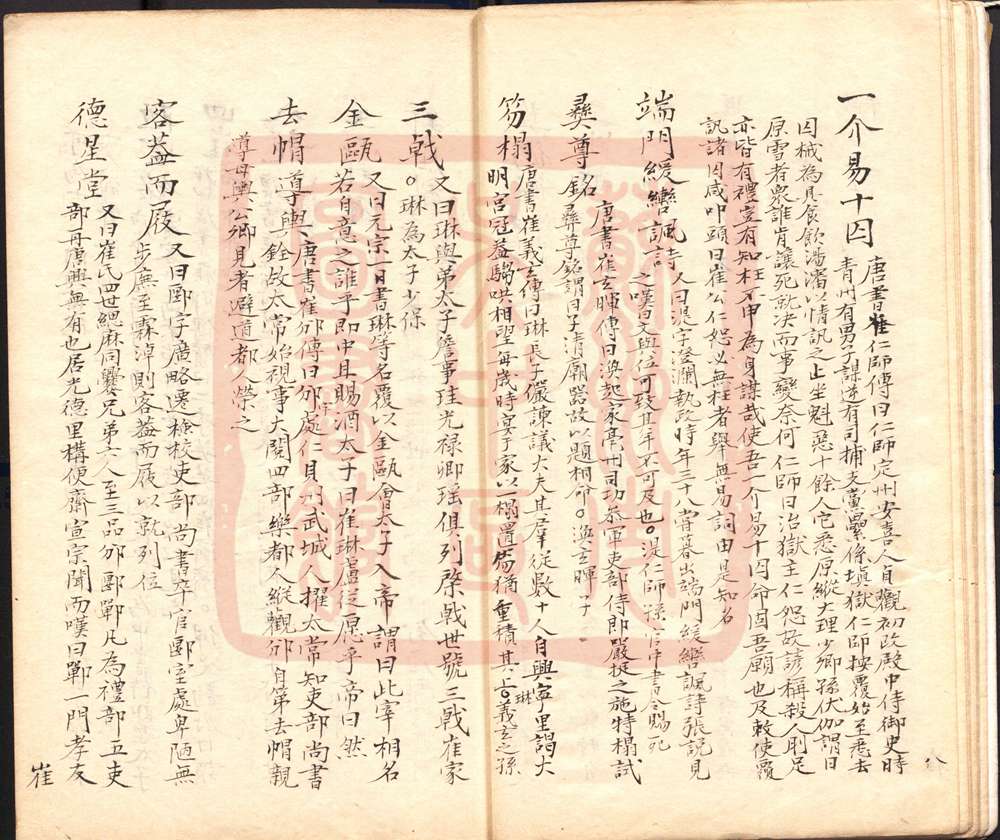 一介易十囚 唐書崔仁師傳曰仁師定州安喜人貞觀初改殿中侍御史時
青州有男子謀逆有司捕支黨纍係塡獄仁師按覆始至悉去
囚械為具食飲湯瀋以情訊之止坐魁惡十餘人它悉原縱大理少卿孫伏伽謂曰
原雪者衆誰肯讓死就決而事變奈何仁師曰治獄主仁恕故諺稱殺人刖足
亦皆有禮豈有知枉不申為身謀哉使吾一介易十囚命固吾願也及敕使覆
訊諸囚咸叩頭曰崔公仁恕必無枉者舉無易詞由是知名
端門緩轡諷詩 又曰湜字澄瀾執政時年三十八嘗暮出端門緩轡諷詩張說見
之嘆曰文與位可致其年不可及也湜仁師孫官中書令賜死
彞尊銘 唐書崔玄暐傳曰渙起家亳州司功叅軍吏部侍郎嚴挺之施特榻試
彞尊銘謂曰子清廟器故以題相命渙玄暐子
笏榻 唐書崔義玄傳曰琳長子儼諫議大夫其羣從數十人自興寧里謁大
明宮冠葢騶哄相望每歲時宴于家以一榻置笏猶重積其上琳義玄之孫
三戟 又曰琳與弟太子詹事珪光禄卿瑶俱列棨戟世號三戟崔家
琳為太子少保
金甌 又曰元宗一日書琳等名覆以金甌會太子入帝 謂曰此宰相名
若自意之誰乎即中且賜酒太子曰崔琳盧從愿乎帝曰然
去帽導輿 唐書崔邠傳曰邠字處仁貝州武城人擢太常知吏部尚書
銓故太常始視事大閱四部樂都人縱觀邠自第去帽親
導母輿公卿見者避道都人榮之
客葢而屐 又曰郾字廣略遷檢校吏部尚書卒官郾室處卑陋無
步廡至霖淖則客葢而屐以就列位
德星堂 又曰崔氏四世緦麻同爨兄弟六人至三品邠郾鄲凡為禮部五吏
部再唐興無有也居光德里構便齋宣宗聞而嘆曰鄲一門孝友
崔